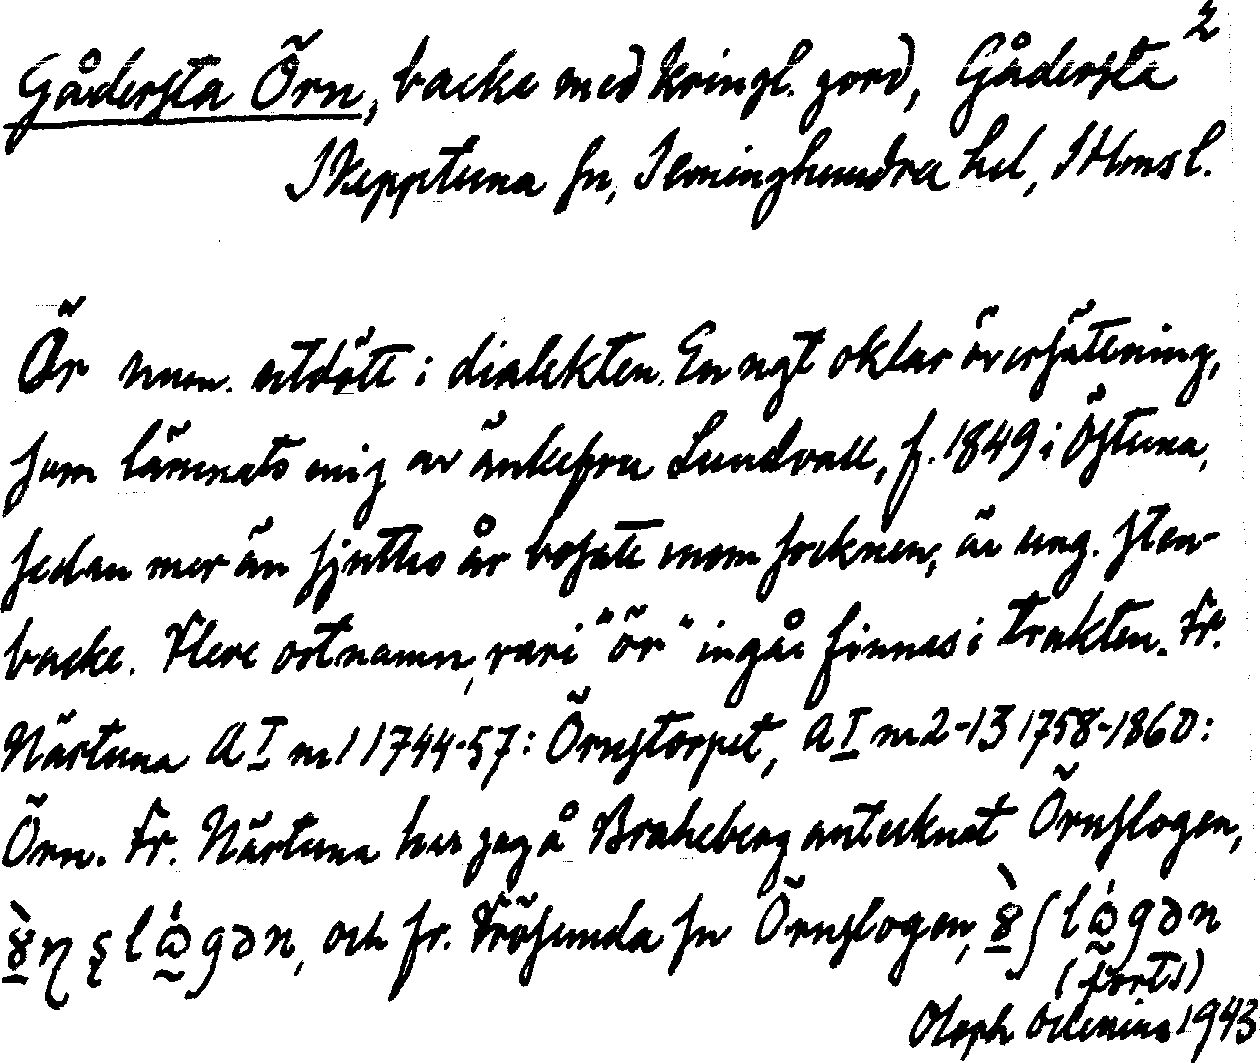 2
Gådersta Örn, backe med kringl. jord, Gådersta
Skepptuna sn, Seminghundra hd, Sthms l.
Ör num. utdött i dialekten. En ngt oklar översättning,
som lämnats mig av änkefru Lundvall, f. 1849 i Östuna,
sedan mer än sjuttio år bosatt inom socknen, är ung. sten-
backe. Flere ortnamn, vari "ör" ingår finnas i trakten. Fr.
Närtuna A I nr 1 1744-57: Örnstorpet, A I nr 2-13 1758-1860:
Örn. Fr. Närtuna har jag å Braheberg antecknat Örnslogen,
och fr. Frösunda sn Örnslogen,
(forts)
1943